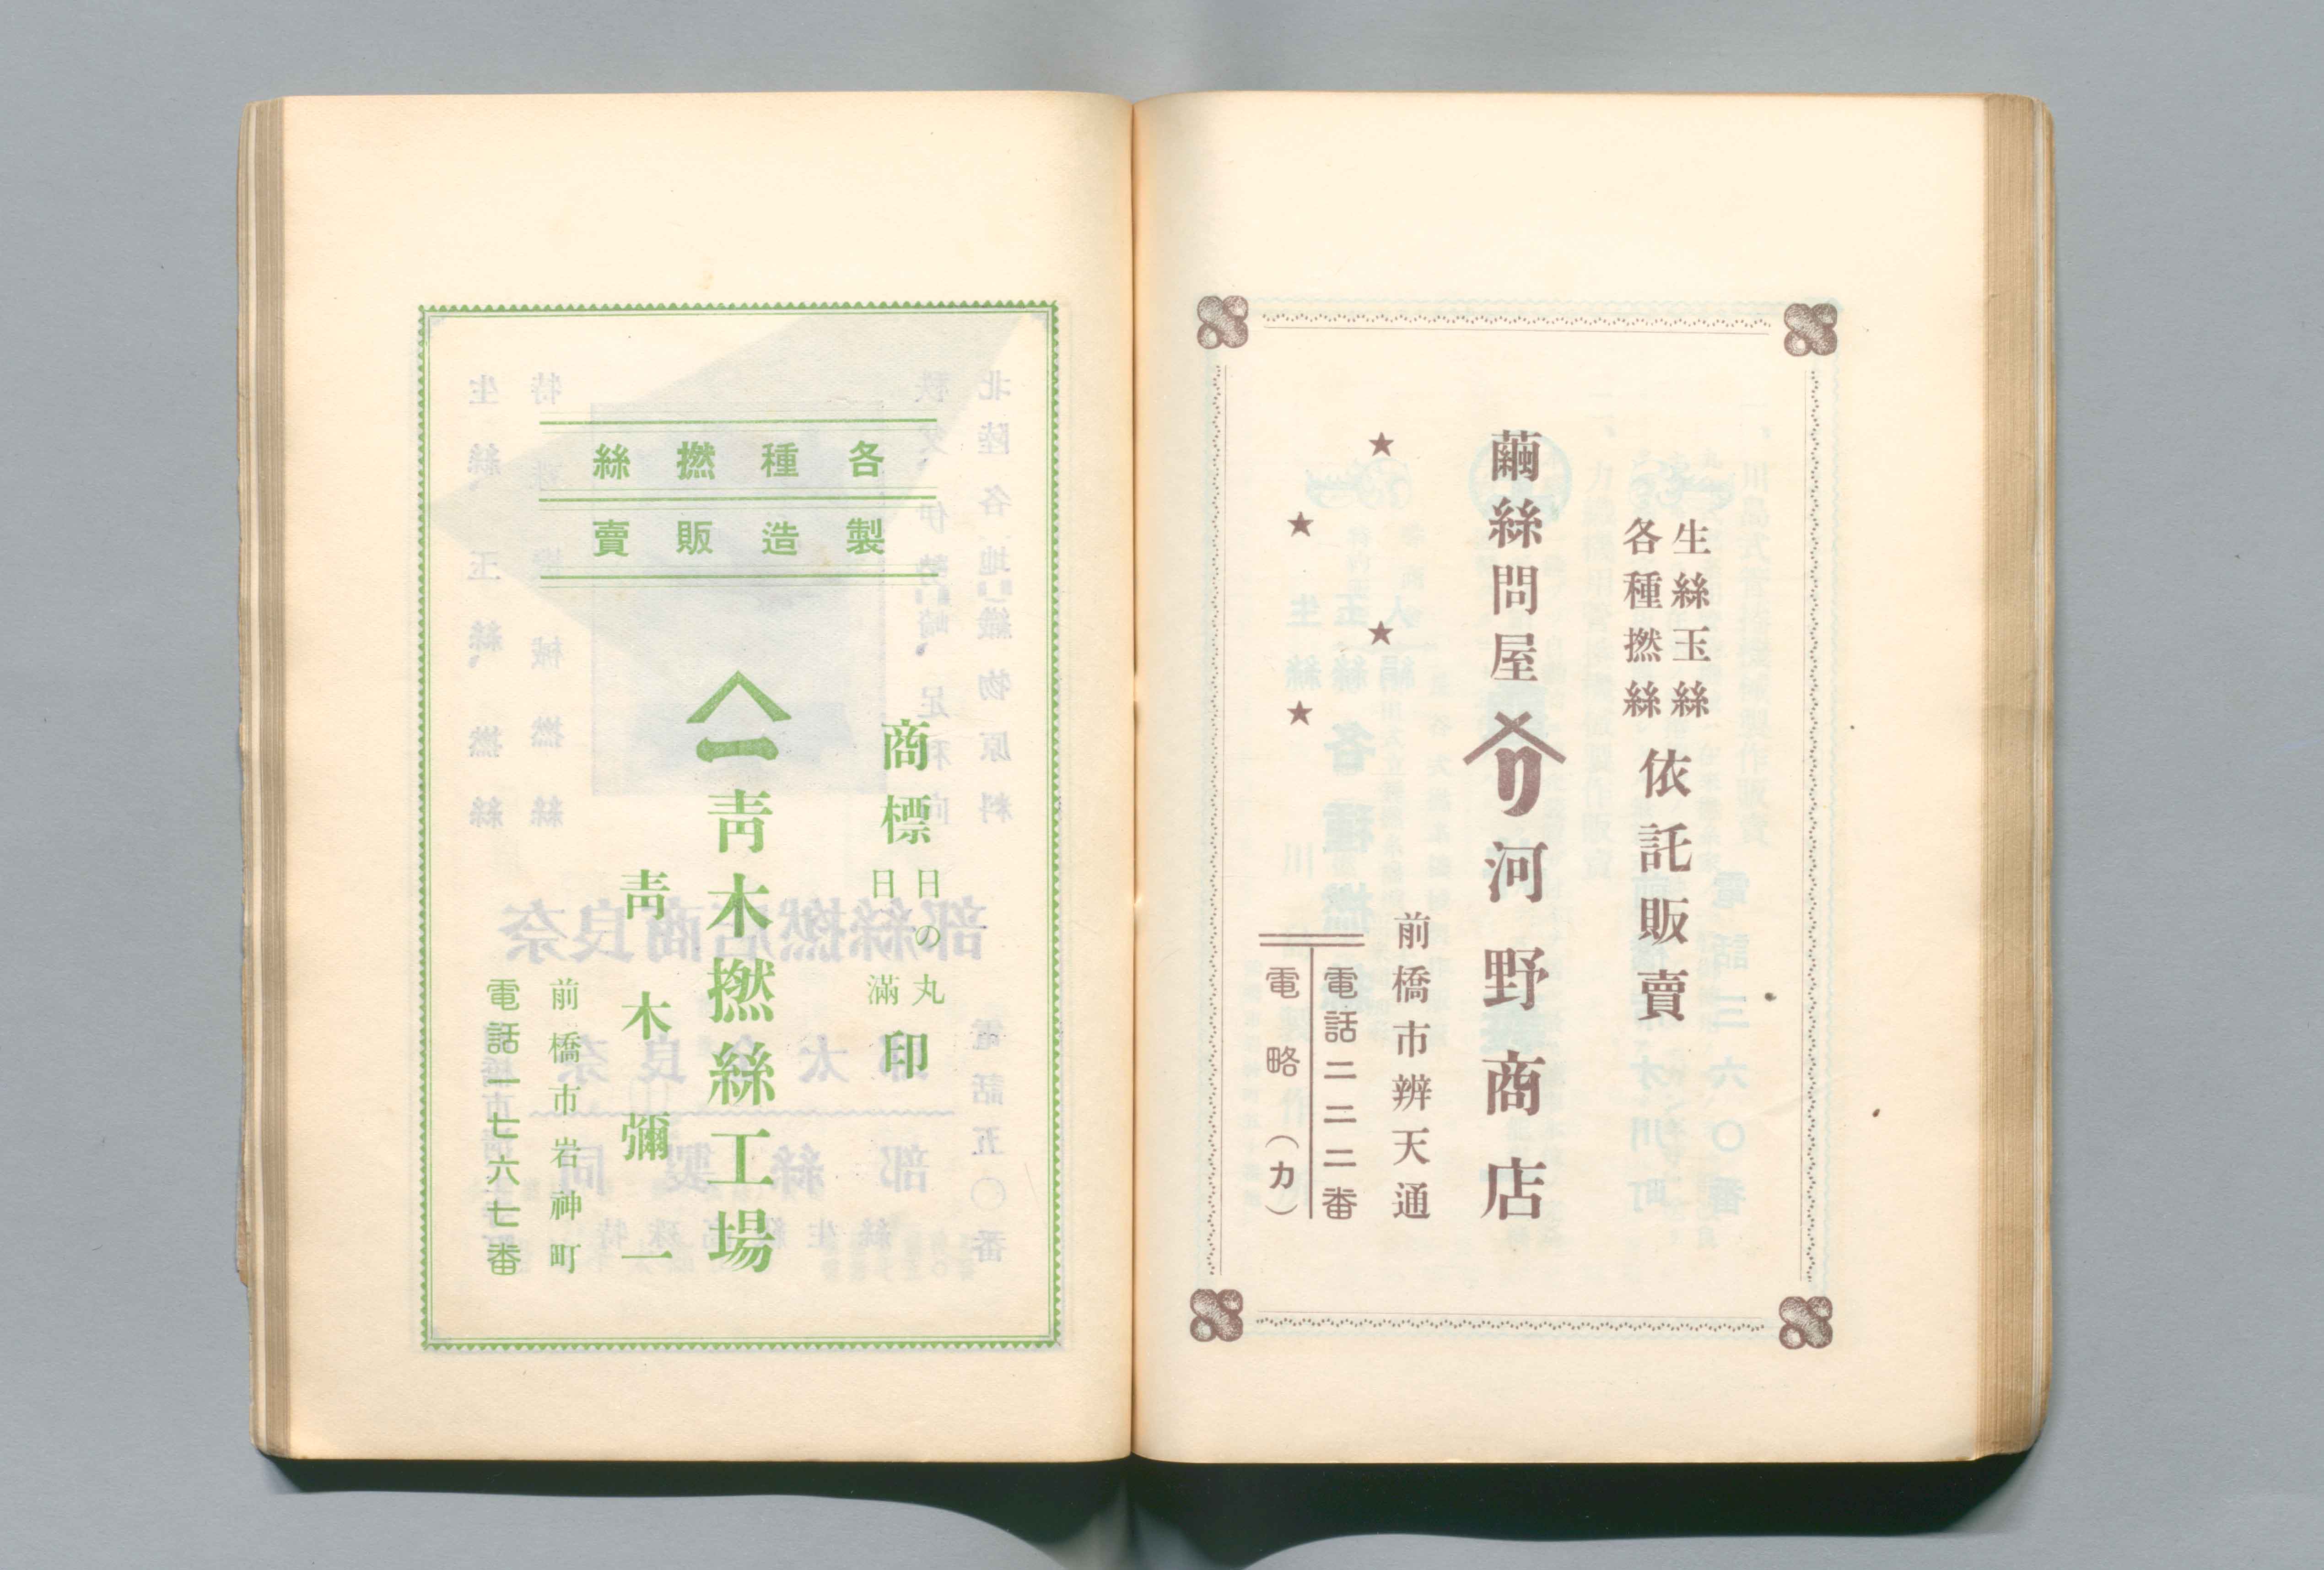 生絲玉絲
各種撚絲
依託販賣
繭絲問屋
リ
河野商店
前橋市辨天通
電話二二二番
電略(カ)
各種撚絲
製造販賣
商標
日の丸
日滿
印
一
靑木撚絲工場
靑木彌一
前橋市岩神町
電話一七六七番